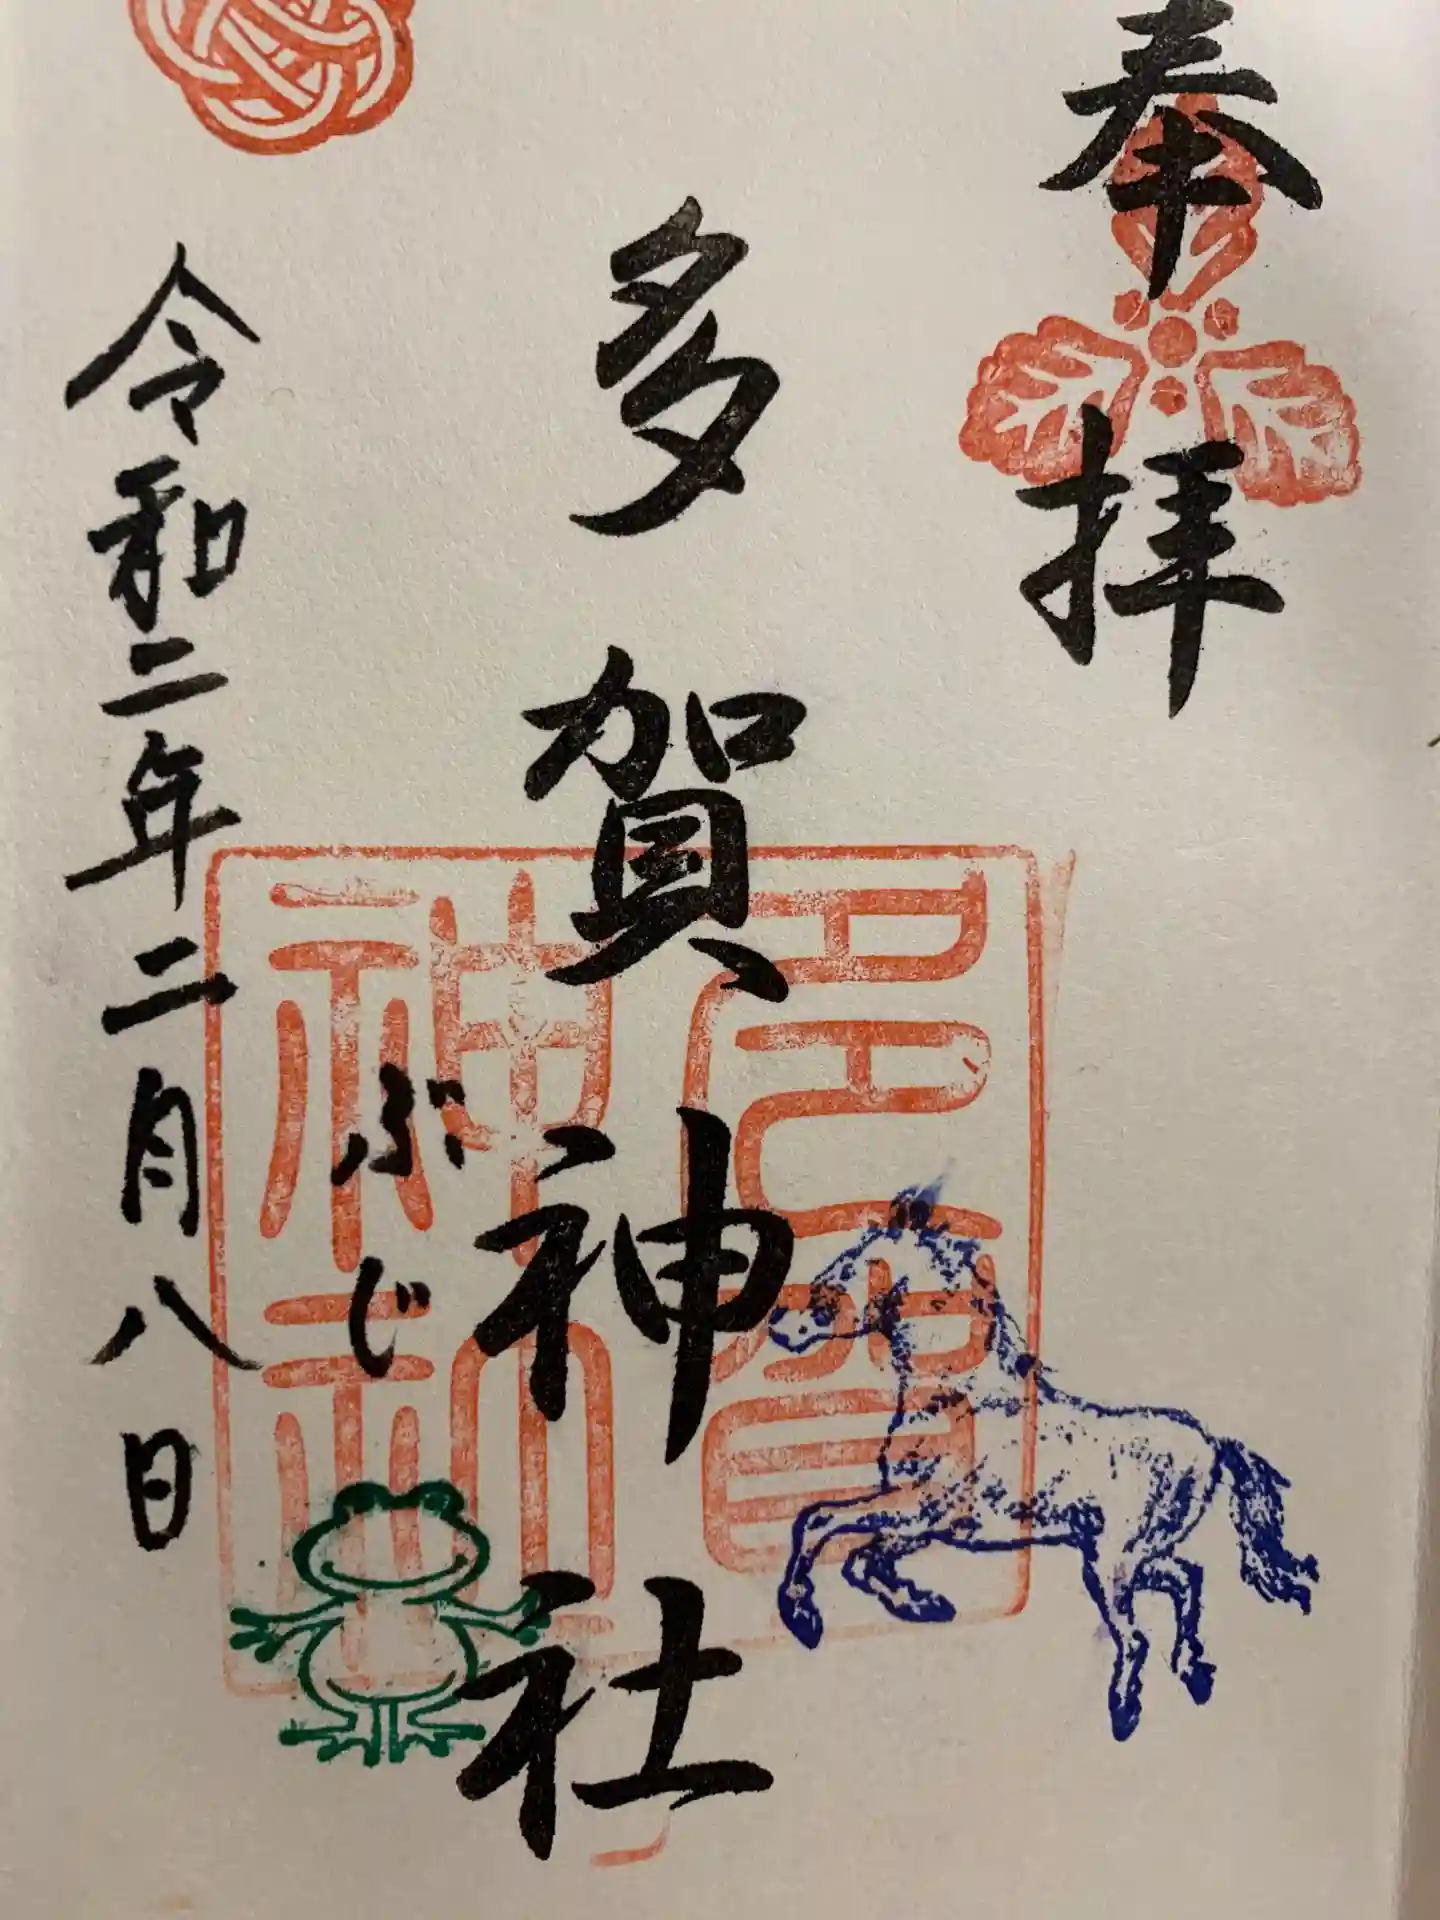 奉拝
多賀神社
多賀神社
ぶじ
令和二年二月八日